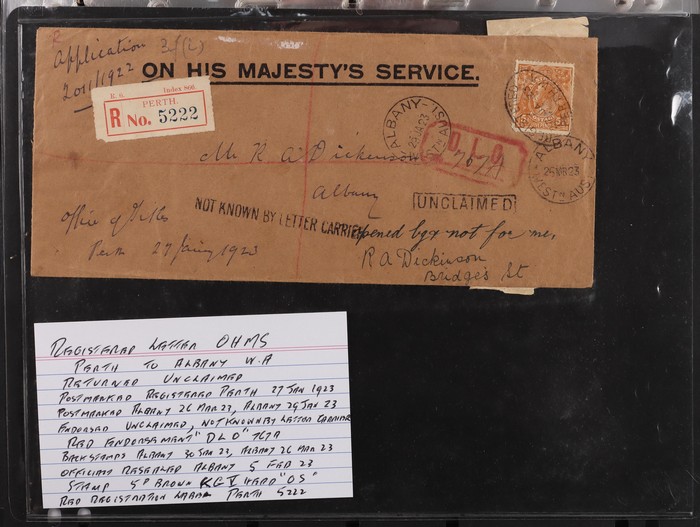 R
Application 3f(2)
2011/1922
ON HIS MAJESTY'S SERVICE.
R. 6. Index 866.
PERTH.
R No. 5222
ALBANY
26 MR 23
WESTN AUS
DLO
767A
Mr R A Dickinson
Albany
UNCLAIMED
NOT KNOWN BY LETTER CARRIER
Office of Titles
Perth 27 Jany 1923
opened by & not for me,
R A Dickinson
Bridges St
REGISTERED LETTER OHMS
PERTH TO ALBANY W.A
RETURNED UNCLAIMED
POSTMARKED REGISTERED PERTH 27 JAN 1923
POSTMARKED ALBANY 26 MAR 23, ALBANY 29 JAN 23
ENDORSED UNCLAIMED, NOT KNOWN BY LETTER CARRIER
RED ENDORSEMENT "DLO" 767A
BACKSTAMPS ALBANY 30 JAN 23, ALBANY 26 MAR 23
OFFICIALLY RESEALED ALBANY 5 FEB 23
STAMP 5D BROWN KGV HEAD "OS"
RED REGISTRATION LABEL PERTH 5222